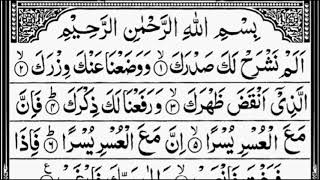 بِسْمِ اللهِ الرَّحْمٰنِ الرَّحِيْمِ
اَلَمْ نَشْرَحْ لَكَ صَدْرَكَ ۙ﴿۱﴾ وَوَضَعْنَا عَنْكَ وِزْرَكَ ۙ﴿۲﴾
الَّذِيْٓ اَنْقَضَ ظَهْرَكَ ۙ﴿۳﴾ وَرَفَعْنَا لَكَ ذِكْرَكَ ؕ﴿۴﴾ فَاِنَّ
مَعَ الْعُسْرِ يُسْرًا ۙ﴿۵﴾ اِنَّ مَعَ الْعُسْرِ يُسْرًا ؕ﴿۶﴾ فَاِذَا